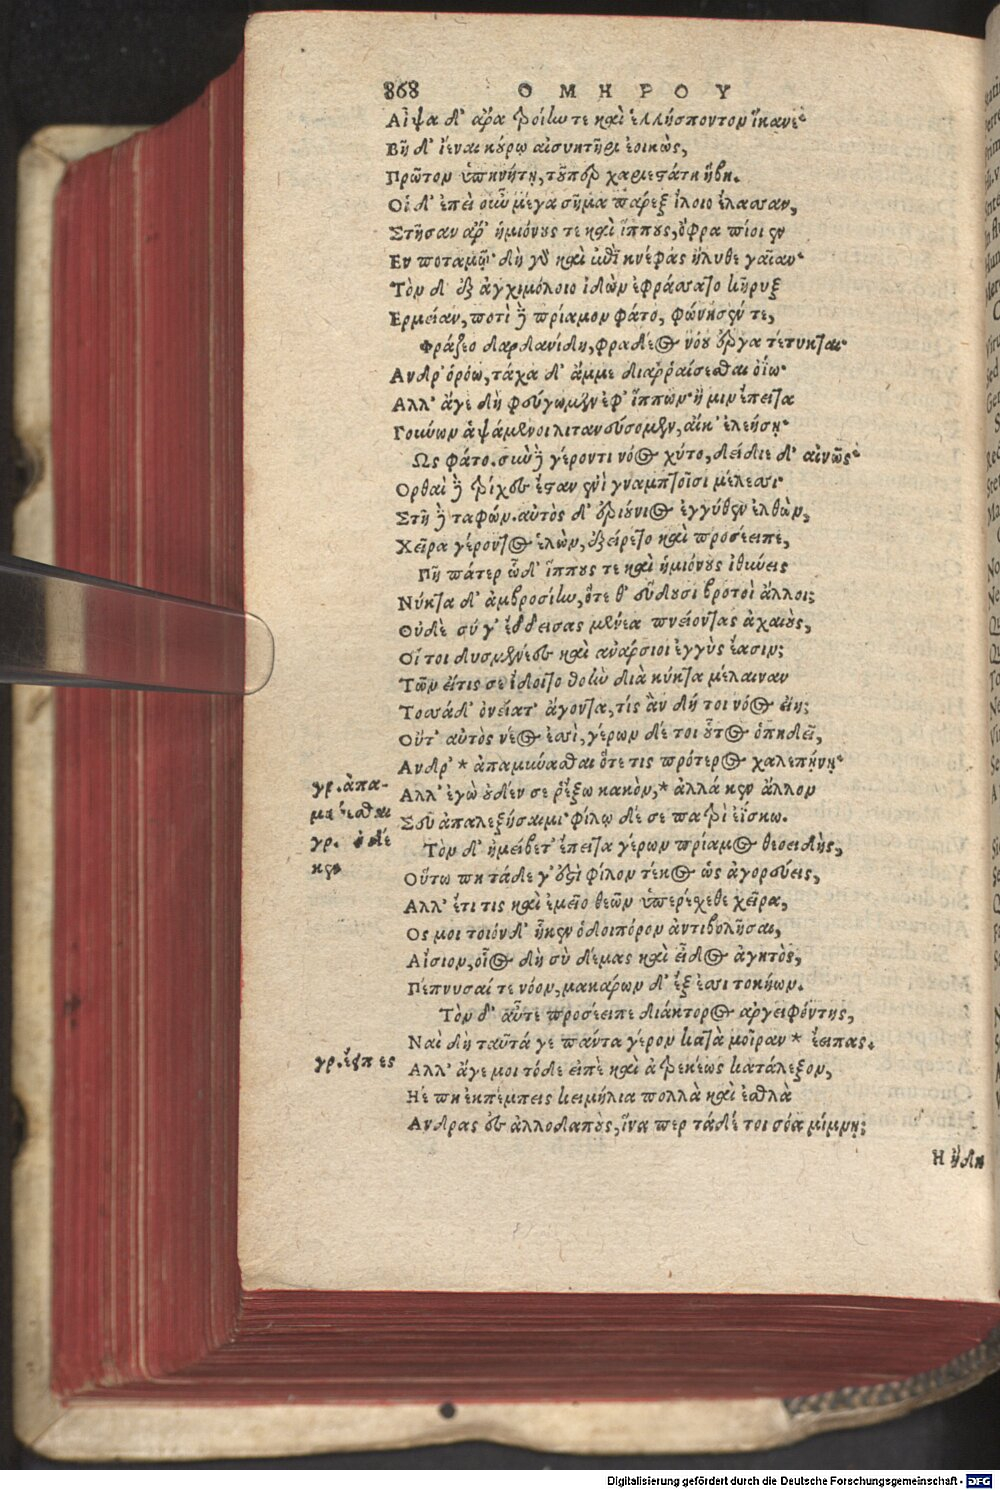 868 ΟΜΗΡΟΥ
Αἶψα δ' ἄρα Τροίην τε καὶ ἑλλήσποντον ἵκανε·
Βῆ δ' ἰέναι κούρῳ αἰσυητῆρι ἐοικὼς,
Πρῶτον ὑπηνήτῃ, τοῦπερ χαριεστάτη ἥβη.
Οἱ δ' ἐπεὶ οὖν μέγα σῆμα παρὲξ ἴλοιο ἔλασσαν,
Στῆσαν ἄρ' ἡμιόνους τε καὶ ἵππους, ὄφρα πίοιεν
Εν ποταμῷ· δὴ γὰρ καὶ ἐπὶ κνέφας ἤλυθε γαῖαν·
Τὸν δ' ἐξ ἀγχιμόλοιο ἰδὼν ἐφράσσατο κῆρυξ
Ερμείαν, ποτὶ δὲ πρίαμον φάτο, φώνησέν τε,
Φράζεο δαρδανίδη, φραδέος νόου ἔργα τέτυκται·
Ανδρ' ὁρόω, τάχα δ' ἄμμε διαῤῥαίσεσθαι ὀΐω·
Αλλ' ἄγε δὴ φεύγωμεν ἐφ' ἵππων· ἤ μιν ἔπειτα
Γούνων ἁψάμενοι λιτανεύσομεν, αἴκ' ἐλεήσῃ·
Ως φάτο. σὺν δὲ γέροντι νόος χύτο, δείδιε δ' αἰνῶς·
Ορθαὶ δὲ τρίχες ἔσταν ἐνὶ γναμπτοῖσι μέλεσσι·
Στῆ δὲ ταφών. αὐτὸς δ' ἐριούνιος ἐγγύθεν ἐλθὼν,
Χεῖρα γέροντος ἑλὼν, ἐξείρετο καὶ προσέειπε,
Πῆ πάτερ ὧδ' ἵππους τε καὶ ἡμιόνους ἰθύνεις
Νύκτα δι' ἀμβροσίην, ὅτε θ' εὕδουσι βροτοὶ ἄλλοι;
Οὐδὲ σύ γ' ἔδδεισας μένεα πνείοντας ἀχαιοὺς,
Οἵ τοι δυσμενέες καὶ ἀνάρσιοι ἐγγὺς ἔασιν;
Τῶν εἴτις σε ἴδοιτο θοὴν διὰ νύκτα μέλαιναν
Τοσσάδ' ὀνείατ' ἄγοντα, τίς ἂν δή τοι νόος εἴη;
Οὔτ' αὐτὸς νέος ἐσσὶ, γέρων δέ τοι οὗτος ὀπηδεῖ,
Ανδρ' * ἀπαμύνασθαι ὅτε τις πρότερος χαλεπήνῃ·
γρ. ἀπα-
μύνεσθαι
Αλλ' ἐγὼ οὐδέν σε ῥέξω κακὸν, * ἀλλά κεν ἄλλον
Σεῦ ἀπαλεξήσαιμι· φίλῳ δέ σε πατρὶ ἐΐσκω.
γρ. ὁ δέ
κεν
Τὸν δ' ἠμείβετ' ἔπειτα γέρων πρίαμος θεοειδὴς,
Οὕτω πη τάδε γ' ἐστὶ φίλον τέκος ὡς ἀγορεύεις,
Αλλ' ἔτι τις καὶ ἐμεῖο θεῶν ὑπερέχεθε χεῖρα,
Ος μοι τοιόνδ' ἧκεν ὁδοιπόρον ἀντιβολῆσαι,
Αἴσιον, οἷος δὴ σὺ δέμας καὶ εἶδος ἀγητὸς,
Πέπνυσαί τε νόον, μακάρων δ' ἔξ ἐσσι τοκήων.
Τὸν δ' αὖτε προσέειπε διάκτορος ἀργειφόντης,
Ναὶ δὴ ταῦτά γε πάντα γέρον κατὰ μοῖραν * ἔειπας.
γρ. ἔειπες
Αλλ' ἄγε μοι τόδε εἰπὲ καὶ ἀτρεκέως κατάλεξον,
Ηέ πη ἐκπέμπεις κειμήλια πολλὰ καὶ ἐσθλὰ
Ανδρας ἐς ἀλλοδαποὺς, ἵνα περ τάδέ τοι σόα μίμνῃ;
Η ἤδη
Digitalisierung gefördert durch die Deutsche Forschungsgemeinschaft - DFG